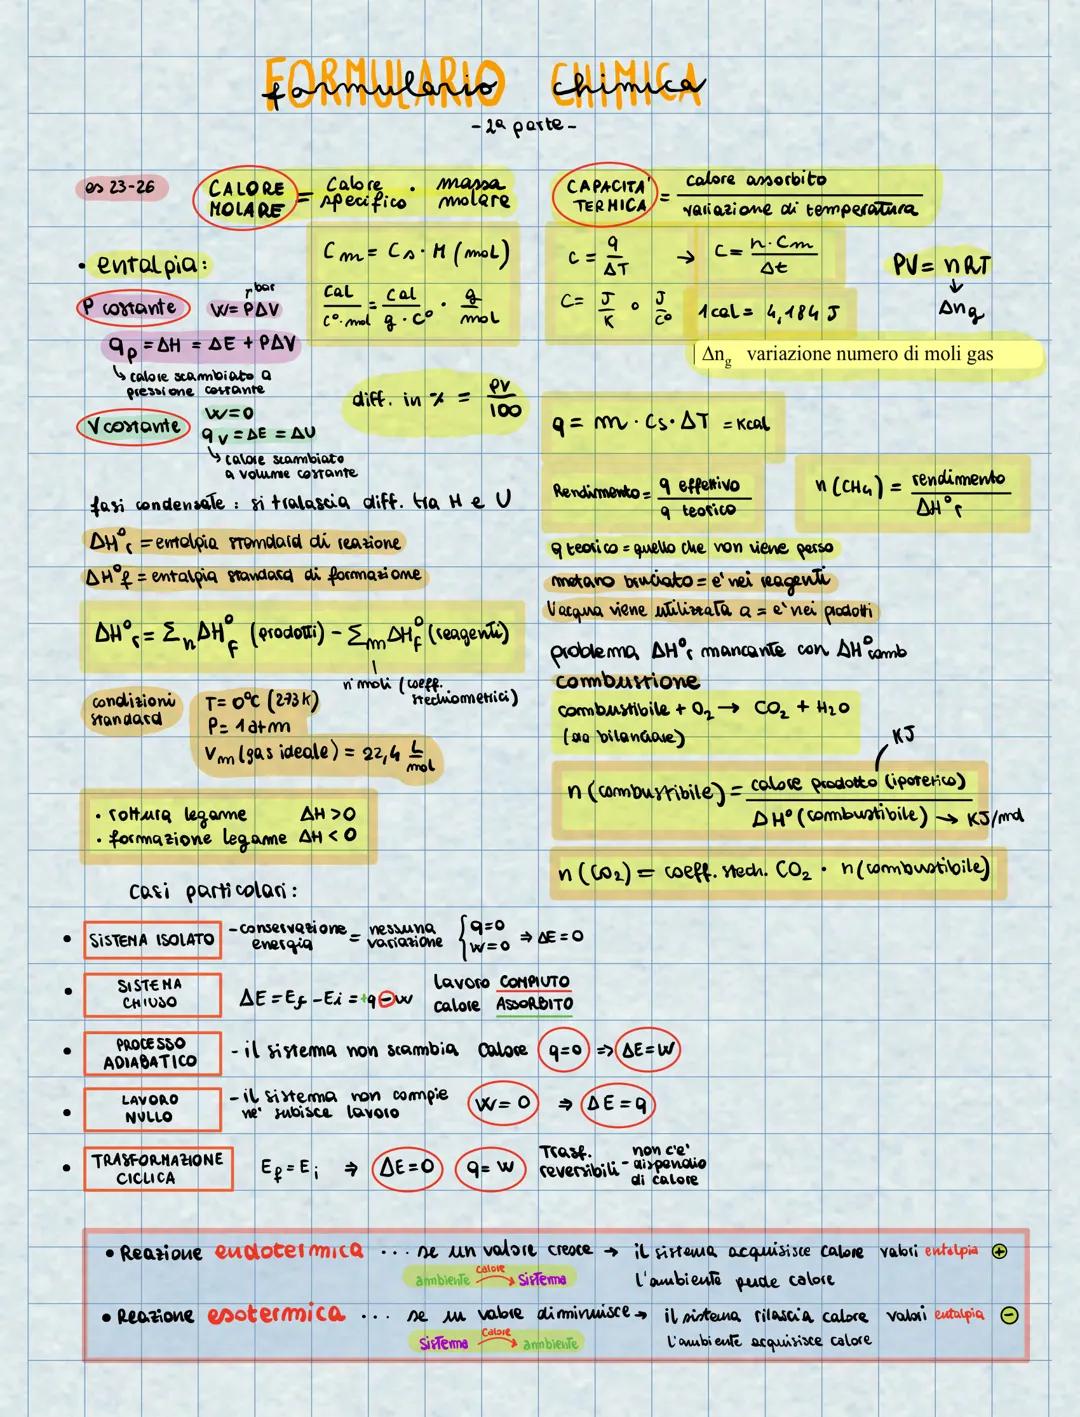 FORMULARIO CHIMICA
formulario chimica
- 2ª parte -
es 23-26
CALORE MOLARE = Calore specifico · massa molare
CAPACITA' TERMICA = calore assorbito / variazione di temperatura
Cm = Cs · M (mol)
cal / C°·mol = cal / g·C° · g / mol
C = q / ΔT → C = n·Cm / Δt
C = J / K o J / C°
1 cal = 4,184 J
PV = nRT
↓
Δng
Δng variazione numero di moli gas
• entalpia:
P costante W = PΔV
bar
qp = ΔH = ΔE + PΔV
↳ calore scambiato a
pressione costante
diff. in % = PV / 100
V costante W=0
qv = ΔE = ΔU
↳ calore scambiato
a volume costante
fasi condensate : si tralascia diff. tra H e U
ΔH°r = entalpia standard di reazione
ΔH°f = entalpia standard di formazione
ΔH°r = Σn ΔH°f (prodotti) - Σm ΔH°f (reagenti)
n° moli (coeff.
stechiometrici)
condizioni standard
T = 0°C (273 K)
P = 1 atm
Vm (gas ideale) = 22,4 L / mol
• rottura legame ΔH > 0
• formazione legame ΔH < 0
q = m · Cs · ΔT = Kcal
Rendimento = q effettivo / q teorico
n (CH4) = rendimento / ΔH°r
q teorico = quello che non viene perso
metano bruciato = e' nei reagenti
l'acqua viene utilizzata a = e' nei prodotti
problema ΔH°r mancante con ΔH°comb
combustione
combustibile + O2 → CO2 + H2O
(da bilanciare)
KJ
n (combustibile) = calore prodotto (ipotetico) / ΔH° (combustibile) → KJ/mol
n (CO2) = coeff. stech. CO2 · n (combustibile)
casi particolari:
• SISTEMA ISOLATO - conservazione energia = nessuna variazione { q=0 W=0 ⇒ ΔE = 0
• SISTEMA CHIUSO ΔE = Ef - Ei = +q - w lavoro COMPIUTO
calore ASSORBITO
• PROCESSO ADIABATICO - il sistema non scambia calore q=0 ⇒ ΔE=W
• LAVORO NULLO - il sistema non compie
ne' subisce lavoro W=0 ⇒ ΔE=q
• TRASFORMAZIONE CICLICA Ef = Ei ⇒ ΔE=0 q=w Trasf. reversibili - non c'e' dispendio di calore
• Reazione endotermica ... se un valore cresce → il sistema acquisisce calore valori entalpia +
ambiente calore → Sistema l'ambiente perde calore
• Reazione esotermica ... se un valore diminuisce → il sistema rilascia calore valori entalpia −
Sistema calore → ambiente l'ambiente acquisisce calore